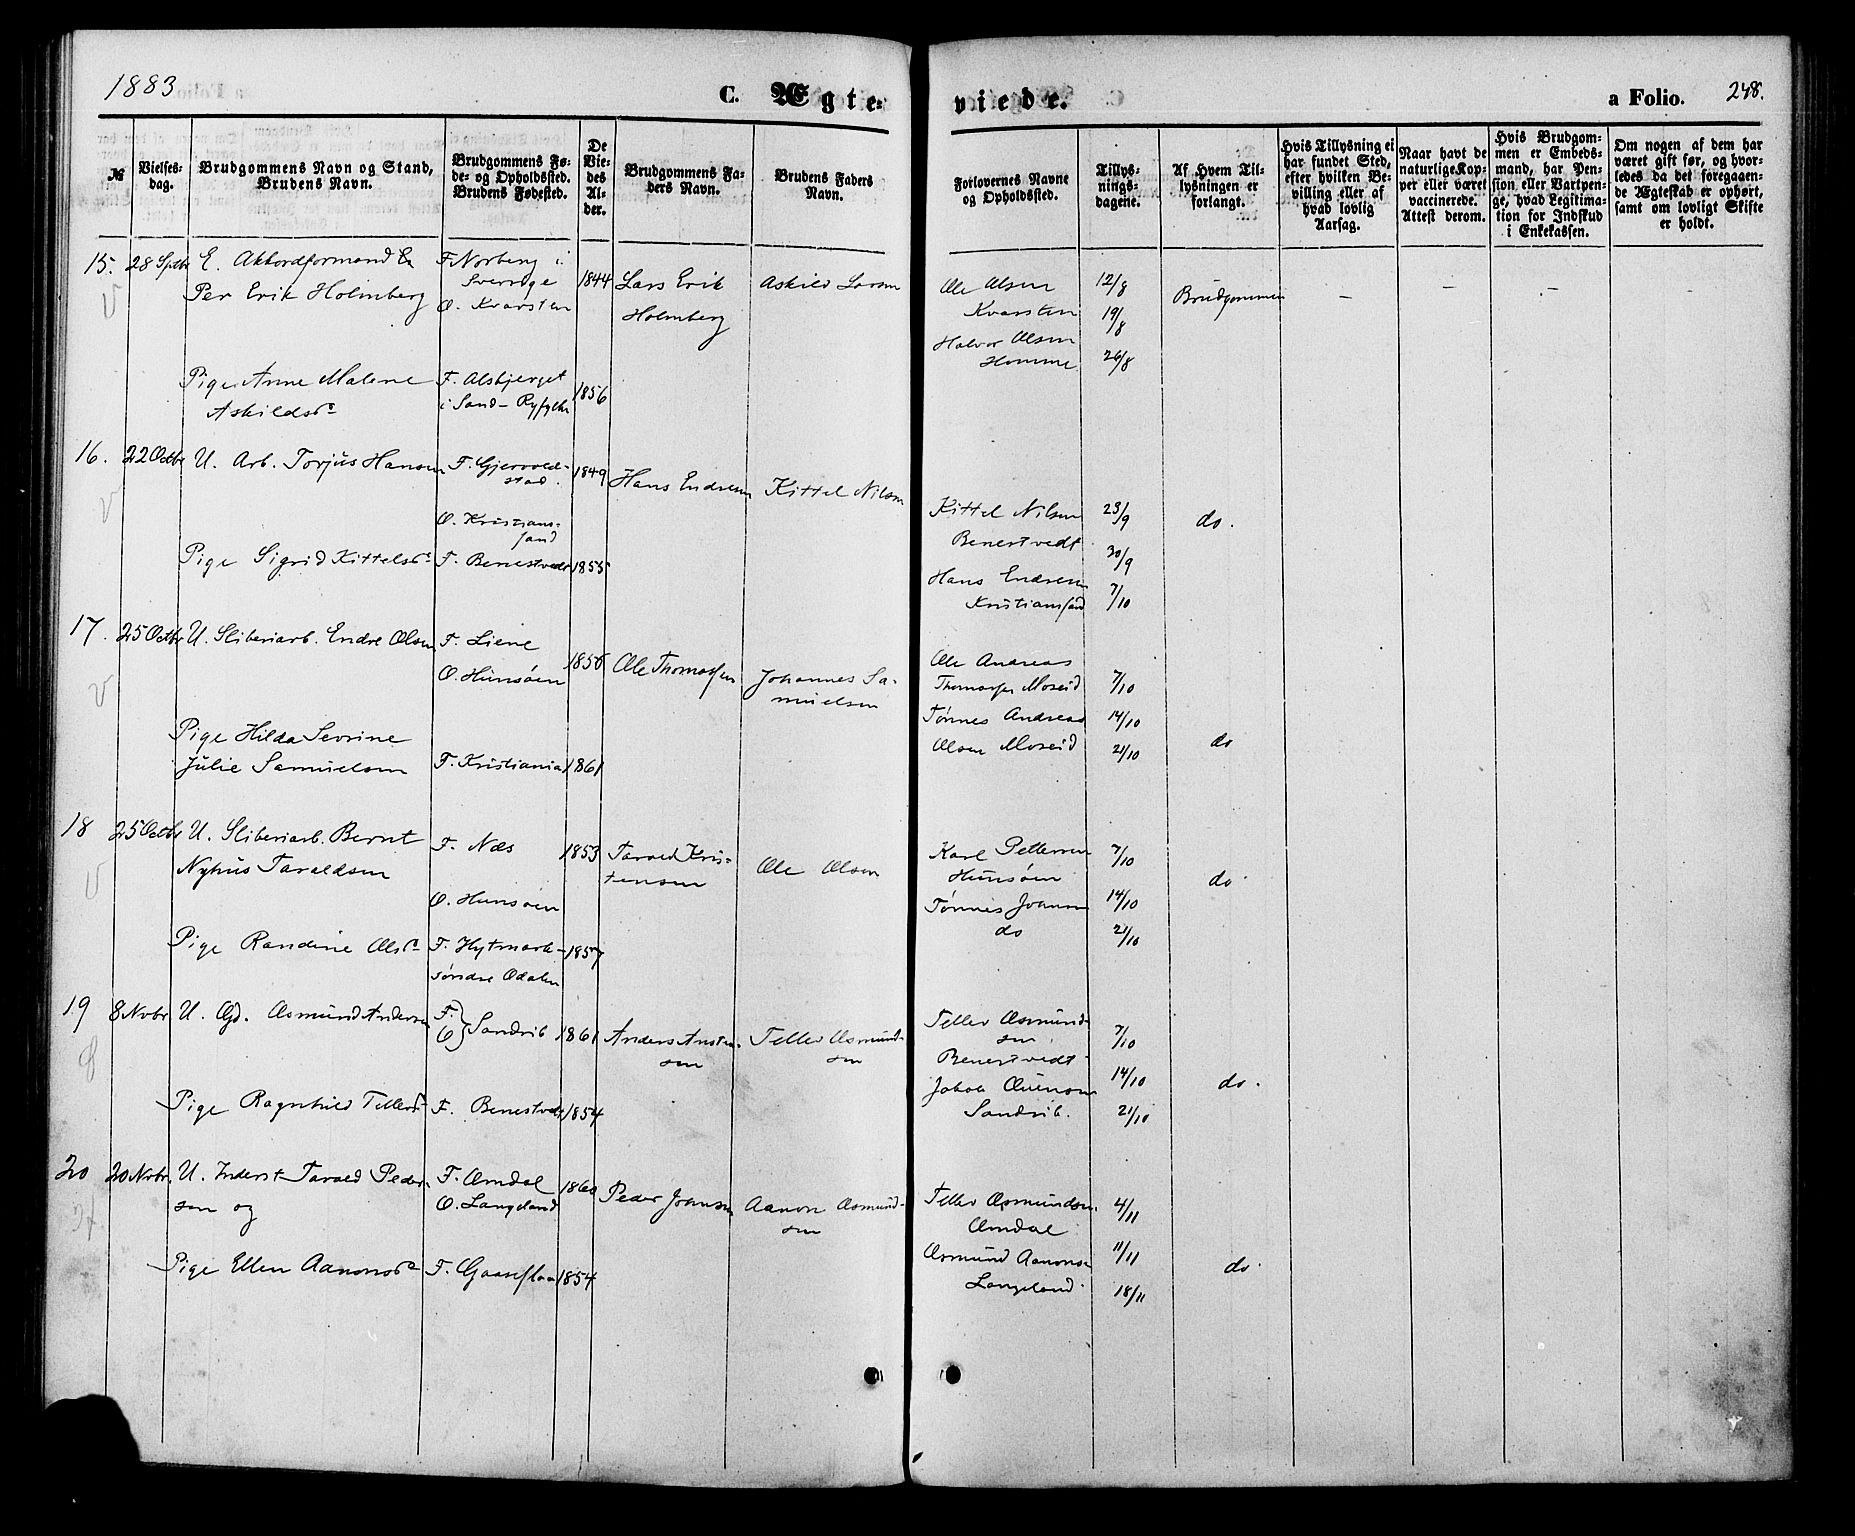 1883
C. Ægte-
viede.
a Folio. 248.
№
Vielses-
dag.
Brudgommens Navn og Stand,
Brudens Navn.
Brudgommens Fø-
de- og Opholdssted.
Brudens Fødested.
De
Vie-
des
Al-
der.
Brudgommens Fa-
ders Navn.
Brudens Faders
Navn.
Forlovernes Navne
og Opholdssted.
Tillys-
nings-
dagene.
Af Hvem Til-
lysningen er
forlangt.
Hvis Tillysning ei
har fundet Sted,
efter hvilken Be-
villing eller af
hvad lovlig
Aarsag.
Naar havt de
naturlige Kop-
per eller været
vaccinerede.
Attest derom.
Hvis Brudgom-
men er Embeds-
mand, har Pen-
sion eller Vartpen-
ge, hvad Legitima-
tion for Indskud
i Enkekassen.
Om nogen af dem har
været gift før, og hvor-
ledes da det foregaaen-
de Ægteskab er ophørt,
samt om lovligt Skifte
er holdt.
15. 28 Septbr E. Akkordformand
Per Erik Holmberg
F. Norberg i
Sverrige
O. Kvarsten
1844
Lars Erik
Holmberg
Askild Larsen
Ole Olsen
Kvarsten
Halvor Olsen
Homme
12/8
19/8
26/8
Brudgommen
— — —
Pige Anne Malene
Askildsd.
F. Alsbjerget
i Sand - Ryfylke
1856
16. 22 Octbr U. Arb. Torjus Hansen
F. Gjervold-
stad.
O. Kristians-
sand
1849
Hans Endresen
Kittel Nilsen
Kittel Nilsen
Benestvedt
Hans Endresen
Kristianssand
23/9
30/9
7/10
do.
Pige Sigrid Kittelsd.
F. Benestvedt
1855
17. 25 Octbr U. Sliberiarb. Endre Olsen
F. Liene
O. Hunsøen
Ole Thomassen
Johannes Sa-
muelsen
Ole Andreas
Thomassen Moseid
Tønnes Andreas
Olsen Moseid
7/10
14/10
21/10
do
Pige Hilda Sevrine
Julie Samuelsen
F. Kristiania
1861
18 25 Octbr U. Sliberiarb. Bernt
Nyhus Taraldsen
F. Næs
O. Hunsøen
1853
Tarald Kris-
tensen
Ole Olsen
Karl Pettersen
Hunsøen
Tønnes Johnsen
do
7/10
14/10
21/10
do
Pige Randine Olsd.
F. Hytmark-
søndre Odalen
1857
19 8 Novbr U. Gd. Osmund Andersen
F.
O } Sandrib
1861
Anders Austen-
sen
Tellev Osmund-
sen
Tellev Osmund-
sen
Benestvedt
Jakob Ouenson
Sandrib.
7/10
14/10
21/10
do.
Pige Ragnhild Tellevsd.
F. Benestvedt
1854
20 20 Novbr. U. Inderst Tarald Peder-
sen og
F. Omdal
O. Langeland
1860
Peder Johnsen
Aanon Osmund-
sen
Tellev Osmundsen
Omdal
Osmund Aanonsen
Langeland
4/11
11/11
18/11
do.
Pige Ellen Aanonsd.
F. Gaaseflaa
1854